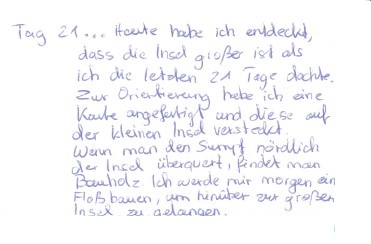 Tag 21... Heute habe ich entdeckt,
dass die Insel großer ist als
ich die letzten 21 Tage dachte.
Zur Orientierung habe ich eine
Karte angefertigt und diese auf
der kleinen Insel versteckt.
Wenn man den Sumpf nördlich
der Insel überquert, findet man
Bauholz. Ich werde mir morgen ein
Floß bauen, um hinüber zur großen
Insel zu gelangen.